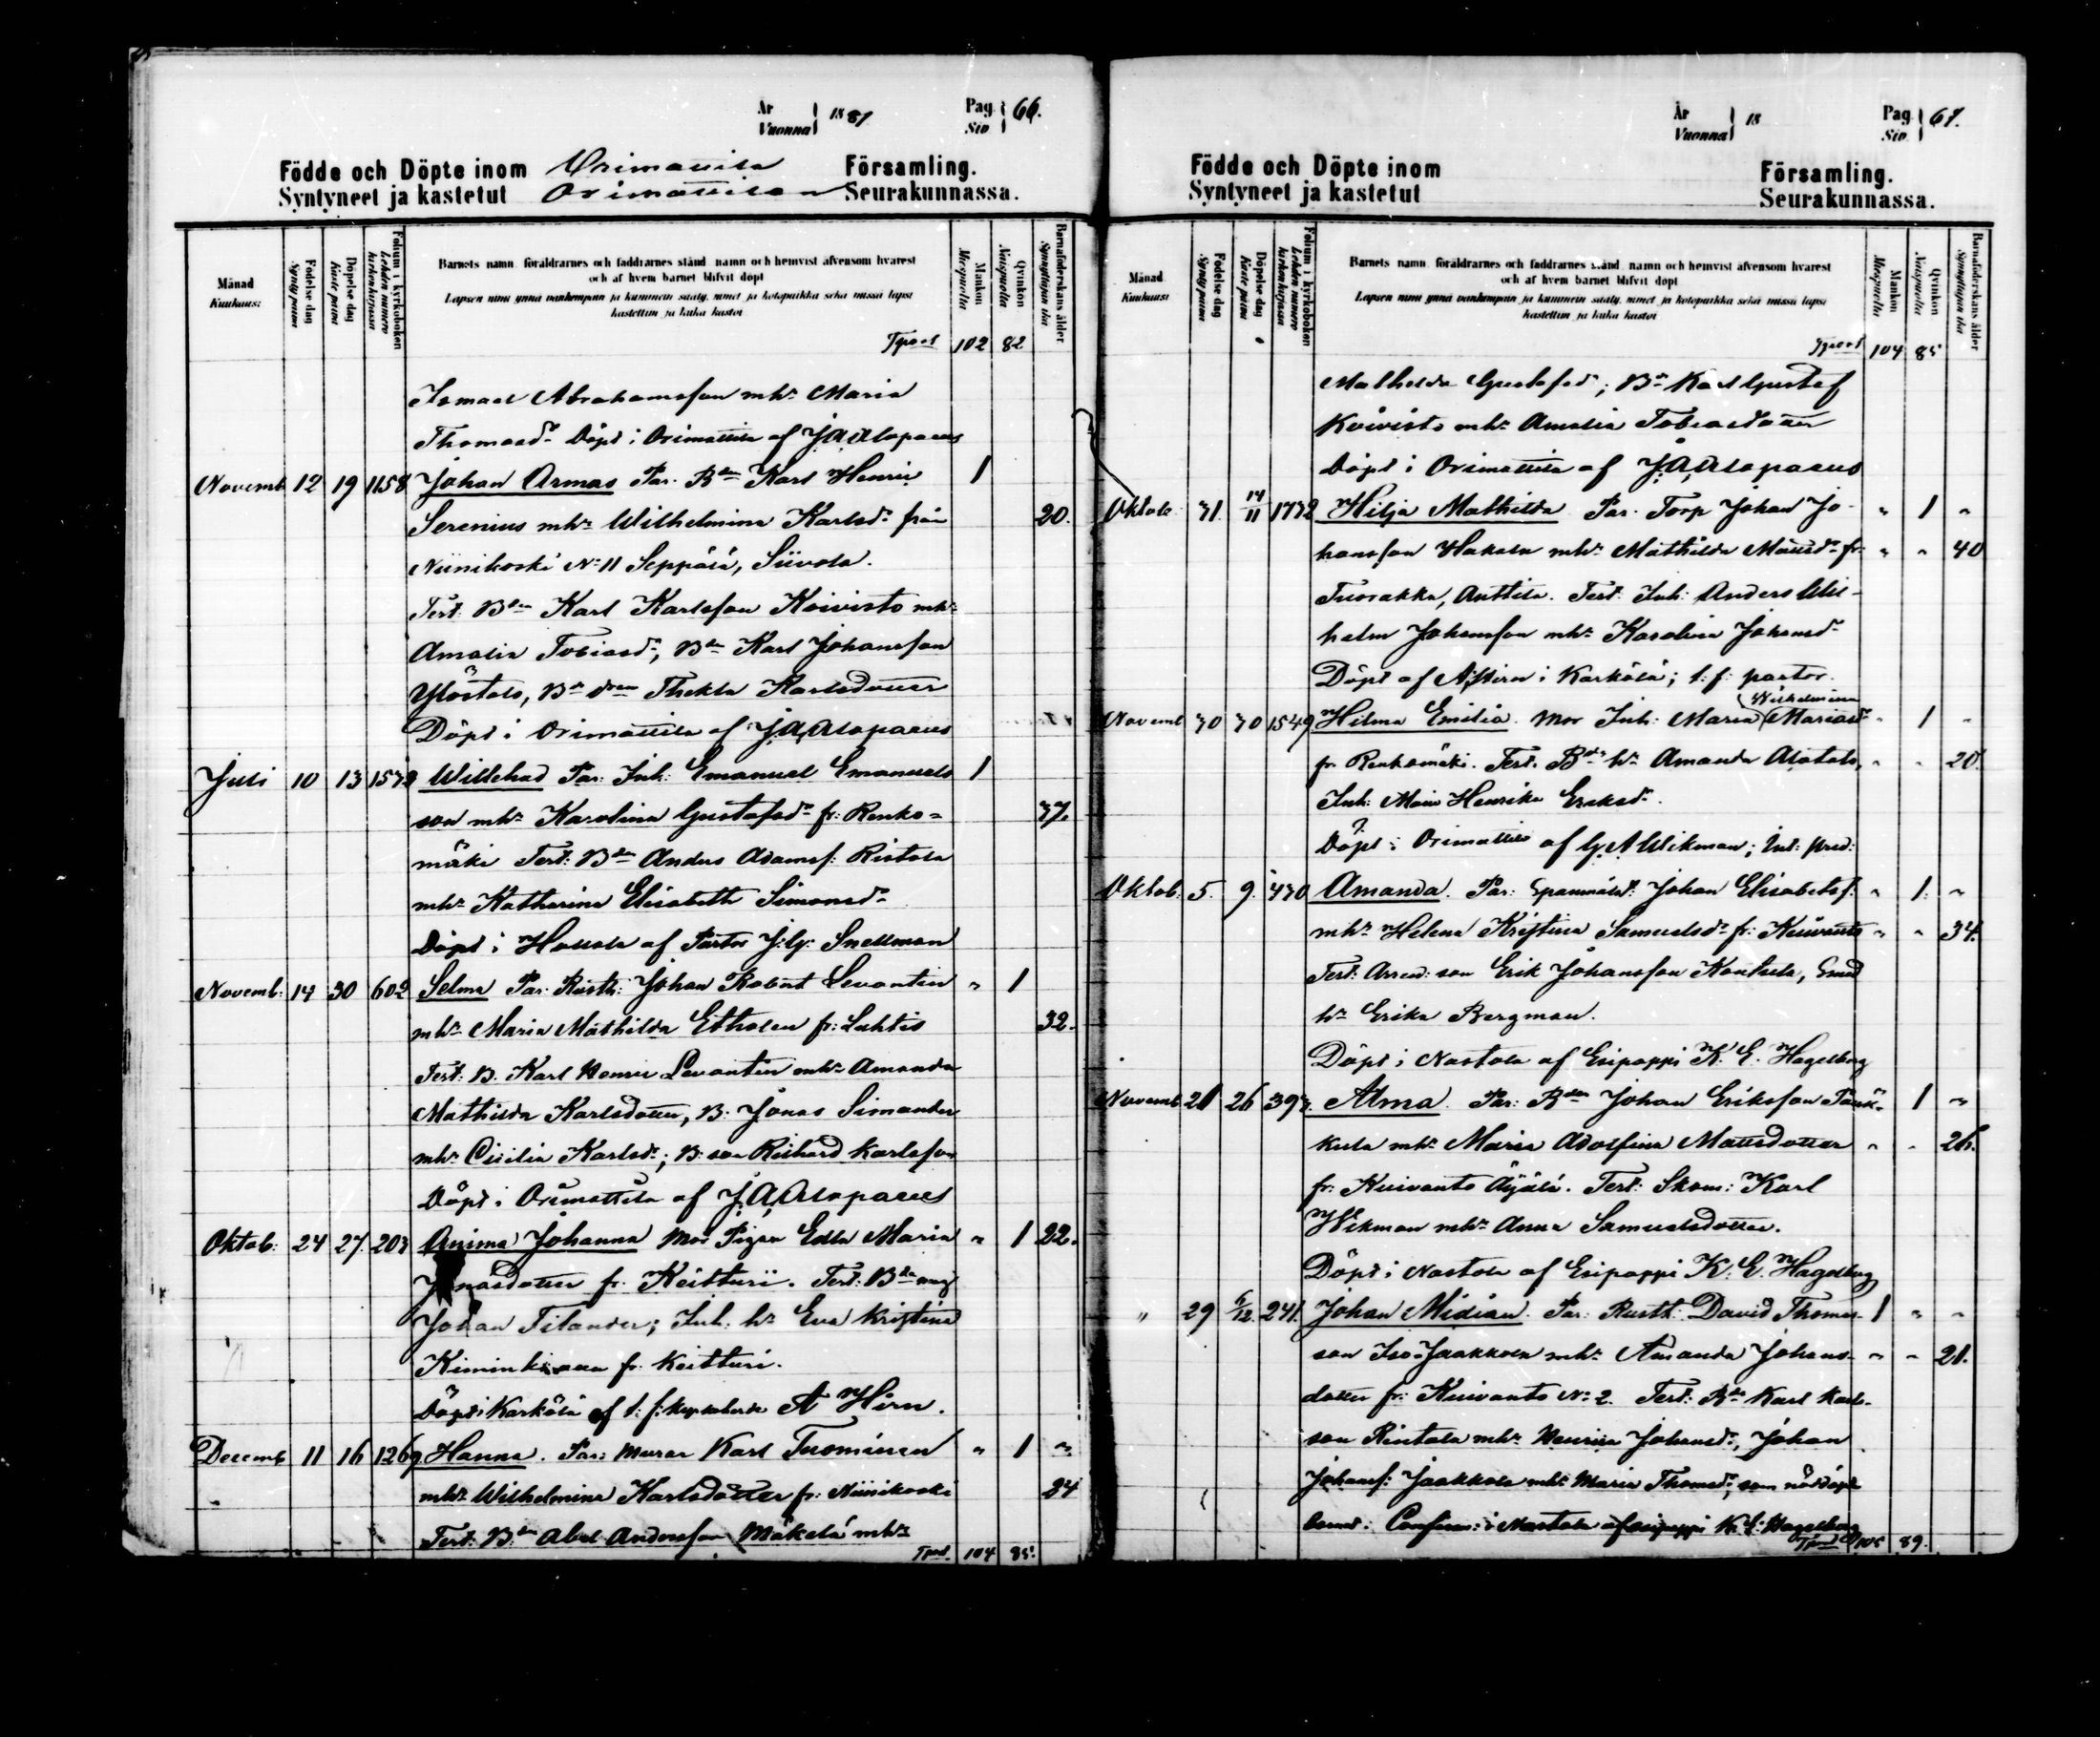 År
Vuonna 1881 Pag. Siv. 66.
Födde och Döpte inom Orimattila Församling.
Syntyneet ja kastetut Orimattilan Seurakunnassa.
Månad Kuukausi
Födelsedag Syntypäivä
Döpelsedag Kastepäivä
Folium i kyrkoboken Lehden numero kirkonkirjassa
Barnets namn, föräldrarnes och faddrarnes stånd, namn och hemvist äfvensom hvarest
och af hvem barnet blifvit döpt
Lapsen nimi ynnä vanhempain ja kummein sääty, nimet ja kotopaikka sekä missä lapsi
kastettun ja kuka kastoi
Mankön Miespuolia
Qvinkön Naispuolia
Barnaföderskans ålder Synnyttäjän ikä
Tport 102 82
Ismael Abrahamsson mhr Maria
Thomasdr Döpt i Orimattila af J A Alopaeus
Novemb 12 19 1158 Johan Armas Par. Bdn Karl Henric 1
Serenius mhr Wilhelmina Karlsdr från 20.
Niinikoski No 11 Seppälä, Siivola.
Test. Bdn Karl Karlsson Koivisto mhr
Amalia Tobiasdr, Bdn Karl Johansson
Ylöstalo, Bdr Thekla Karlsdotter
Döpt i Orimattila af J A Alopaeus
Juli 10 13 Willehad Par: Inh: Emanuel Emanuels 1
son mhr Karolina Gustafsdr fr: Renko= 37.
mäki Test: Bdn Anders Adamsf: Ristola
mhr Katharina Elisabeth Simonsdr
Döpt i Hollola af Pastor J: G: Snellman
Novemb: 14 30 602 Selma Par. Rusth: Johan Robert Levantin " 1
mhr Maria Mathilda Etholen fr: Luhtis 32.
Test: B. Karl Henric Levantin mhr Amanda
Mathilda Karlsdotter, B: Jonas Simander
mhr Cicilia Karlsdr; B: son Richard Karlsson
Döpt i Orimattila af J A Alopaeus
Oktob: 24 27. 203 Johanna Mor Pigan Edla Maria " 1 22.
Jonasdotter fr. Keitturi. Test: Bdn
Johan Filander; Inh: hr Eva Kristina
fr. Keitturi.
Döpt i Karkölä af A Hirn.
Decemb 11 16 1269 Hanna. Par: Murar Karl Tuominen " 1 "
mhr Wilhelmina Karlsdotter fr: Niinikoski 24
Test: Bdn Abel Andersson Mäkelä mhr
Tport. 104 85
År
Vuonna 18 Pag. Siv. 67.
Födde och Döpte inom Församling.
Syntyneet ja kastetut Seurakunnassa.
Månad Kuukausi
Födelsedag Syntypäivä
Döpelsedag Kastepäivä
Folium i kyrkoboken Lehden numero kirkonkirjassa
Barnets namn, föräldrarnes och faddrarnes stånd, namn och hemvist äfvensom hvarest
och af hvem barnet blifvit döpt
Lapsen nimi ynnä vanhempain ja kummein sääty, nimet ja kotopaikka sekä missä lapsi
kastettun ja kuka kastoi
Mankön Miespuolia
Qvinkön Naispuolia
Barnaföderskans ålder Synnyttäjän ikä
Tport 104 85
Mathilda Gustafsdr; Bdn Karl Gustaf
Koivisto mhr Amalia Tobiasdotter
Döpt i Orimattila af J A Alopaeus
Oktob. 31 14/11 1732 Hilja Mathilda Par. Torp Johan Jo- " 1 "
hansson Hakala mhr Mathilda Mattsdr fr. " " 40
Tuorakka, Anttila. Test: Inh: Anders Wil-
helm Johansson mhr Karolina Johansdr
Döpt af A Hirn i Kärkölä; t: f: pastor.
Novemb 30 30 1549 Hilma Emilia. Mor Inh: Maria (Wilhelmina Mariasdr " 1 "
fr. Renkomäki. Test: Bdn hr Amanda Alatalo, " " 20.
Inh: Maria Henrika Eriksdr.
Döpt i Orimattila af G A Wikman;
Oktob: 5. 9. 430 Amanda. Par: Spanmålst: Johan Elisabetsf: " 1. "
mhr Helena Kristina Samuelsdr fr: Kuivanto " " 34.
Test: Arren: son Erik Johansson Konkala,
hr Erika Bergman.
Döpt i Nastola af Esipappi K. E. Hagelberg
Novemb 21 26 393. Alma. Par: Bdn Johan Eriksson " 1 "
kula mhr Maria Adolfina Mattsdotter " " 26.
fr: Kuivanto Äijälä. Test: Skom: Karl
Wikman mhr Anna Samuelsdotter.
Döpt i Nastola af Esipappi K. E. Hagelberg
" 29 6/12. 241. Johan Midian. Par: Rusth: David Thomas- 1 " "
son Iso-Jaakkola mhr Amanda Johans- " " 21.
dotter fr: Kuivanto No 2. Test: Bdn Karl Karls-
son Rintala mhr Henrica Johansdr, Johan
Johansf: Jaakkola mhr Maria Thomasdr, som nöddöpt
barnet. Confirm: i Nastola af esipappi K. E. Hagelberg
Tport 105 89.